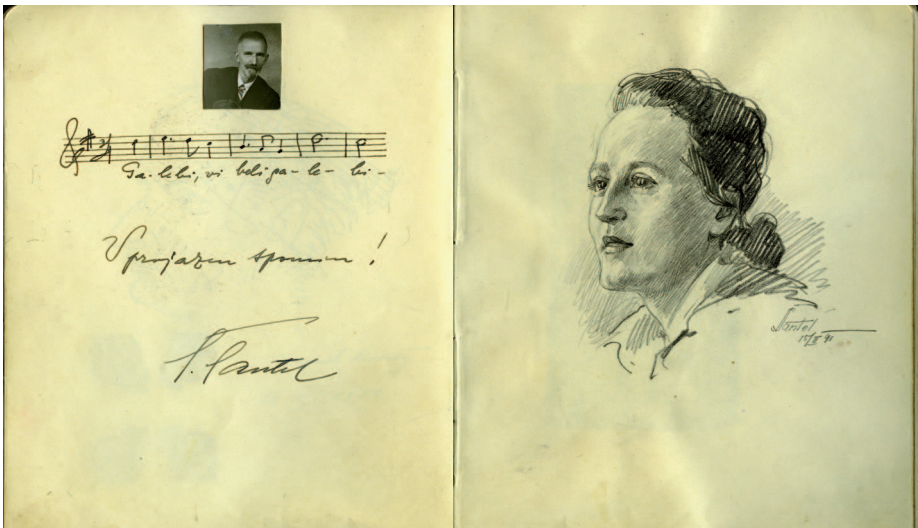 Ga-lebi, vi beli ga-le-bi-
V prijazen spomin!
S. Santel
Santel